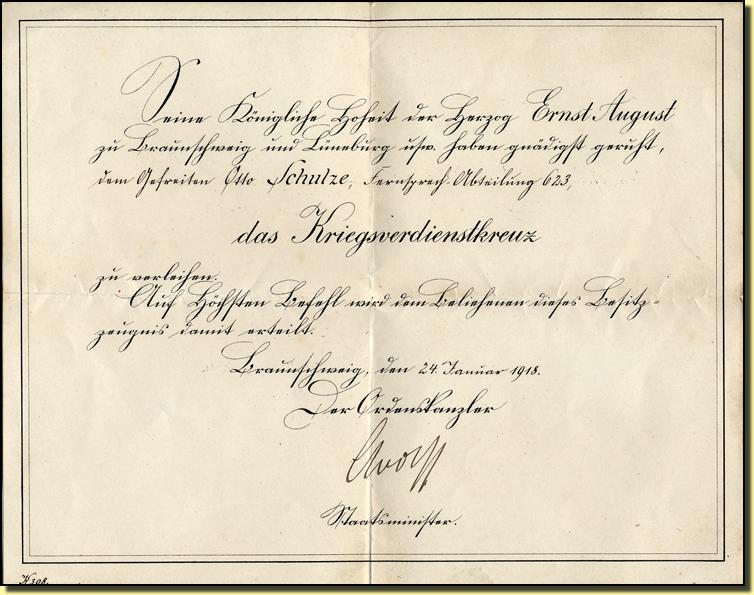 Seine Königliche Hoheit der Herzog Ernst August
zu Braunschweig und Lüneburg usw. haben gnädigst geruht,
dem Gefreiten Otto Schulze, Fernsprech-Abteilung 623,
das Kriegsverdienstkreuz
zu verleihen.
Auf Höchsten Befehl wird dem Beliehenen dieses Besitz-
zeugnis damit erteilt.
Braunschweig, den 24. Januar 1918.
Der Ordenskanzler
Staatsminister.
K 398.